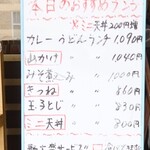 本日のおすすめランチ
ミニ天丼200円増
カレーうどんランチ 1,090円
山かけ 〃 1040円
みそ煮込み 〃 1000円
きつね 〃 860円
玉子とじ 〃 830円
ミニ天丼 〃 300円